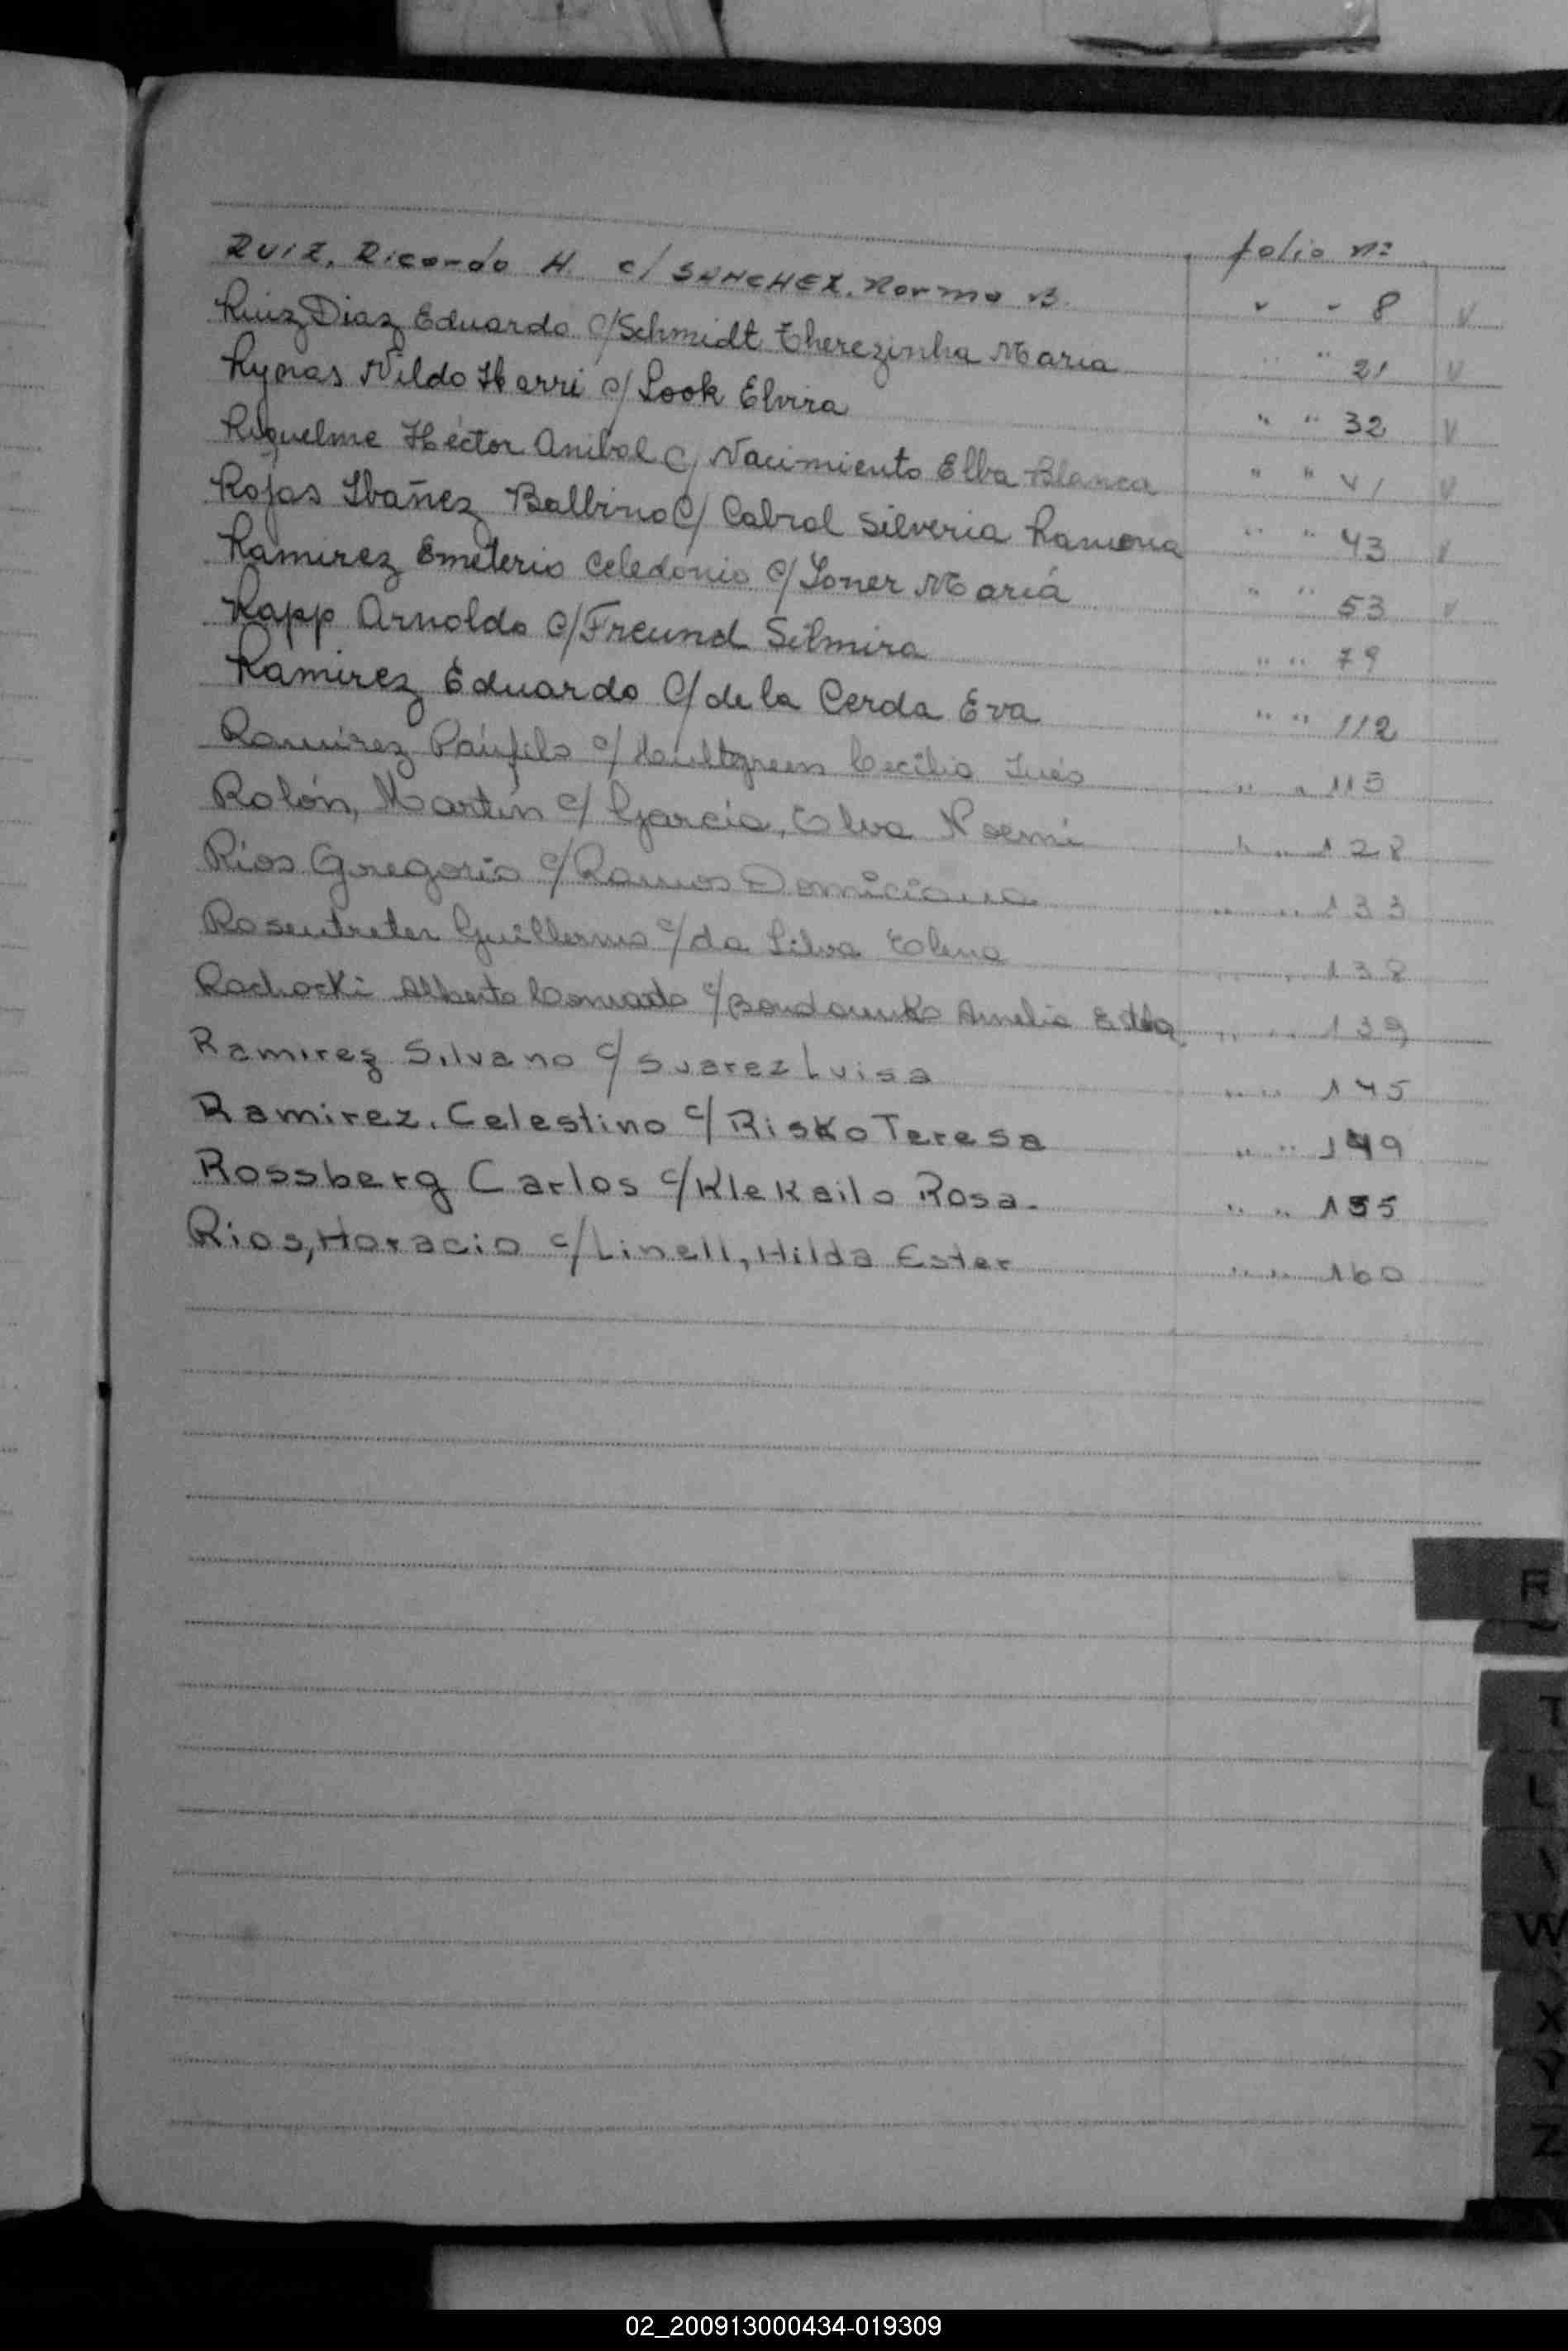 folio nº
RUIZ, Ricardo H. c/ SANCHEZ, Norma B. " " 8 V
Ruiz Diaz Eduardo c/ Schmidt Therezinha Maria " " 21 V
Rynas Nildo Harri c/ Look Elvira " " 32 V
Riquelme Héctor Anibal c/ Nacimiento Elba Blanca " " 41 V
Rojas Ibañez Balbino c/ Cabral Silveria Ramona " " 43 V
Ramirez Emeterio Celedonio c/ Loner Mariá " " 53 V
Rapp Arnoldo c/ Freund Silmira " " 79
Ramirez Eduardo c/ de la Cerda Eva " " 112
Ramirez Pánfilo c/ Hultgreen Cecilia Inés " " 115
Rolón, Martín c/ Garcia, Elva Noemi " " 128
Rios Gregorio c/ Ramos Domiciana " " 133
Rosentreter Guillermo c/ da Silva Elena " " 138
Rachocki Alberto Conrado c/ Bondarenko Amelia " " 139
Ramirez Silvano c/ Suarez Luisa " " 145
Ramirez, Celestino c/ Risko Teresa " " 149
Rossberg Carlos c/ Klekailo Rosa. " " 155
Rios, Horacio c/ Linell, Hilda Ester " " 160
R
T
W
X
Y
Z
02_200913000434-019309